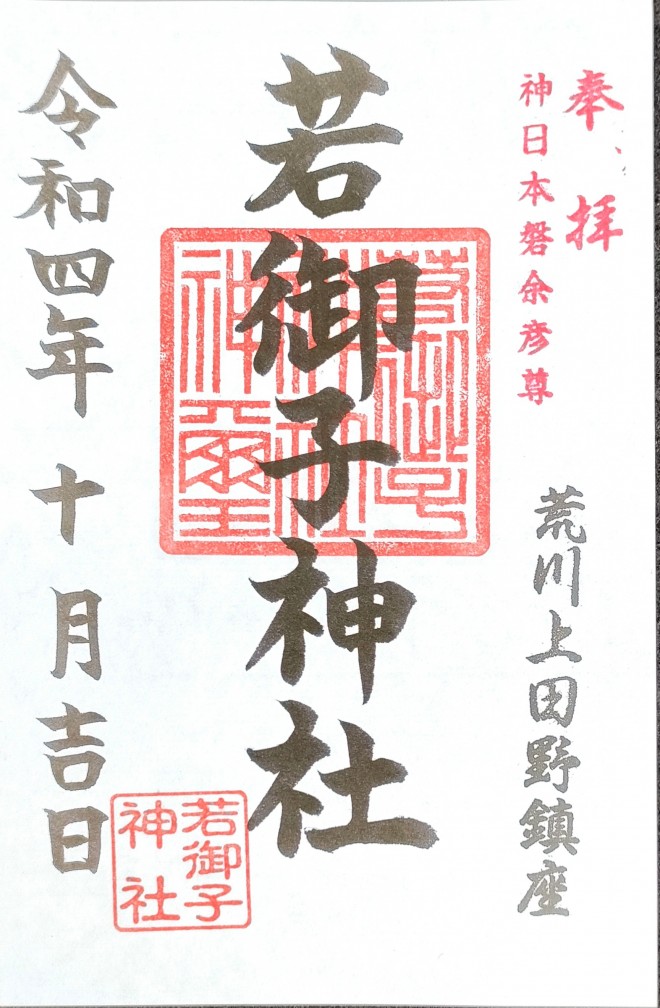 奉拝
神日本磐余彦尊
荒川上田野鎮座
若御子神社
若御子
神社
神璽
若御子
神社
令和四年十月吉日